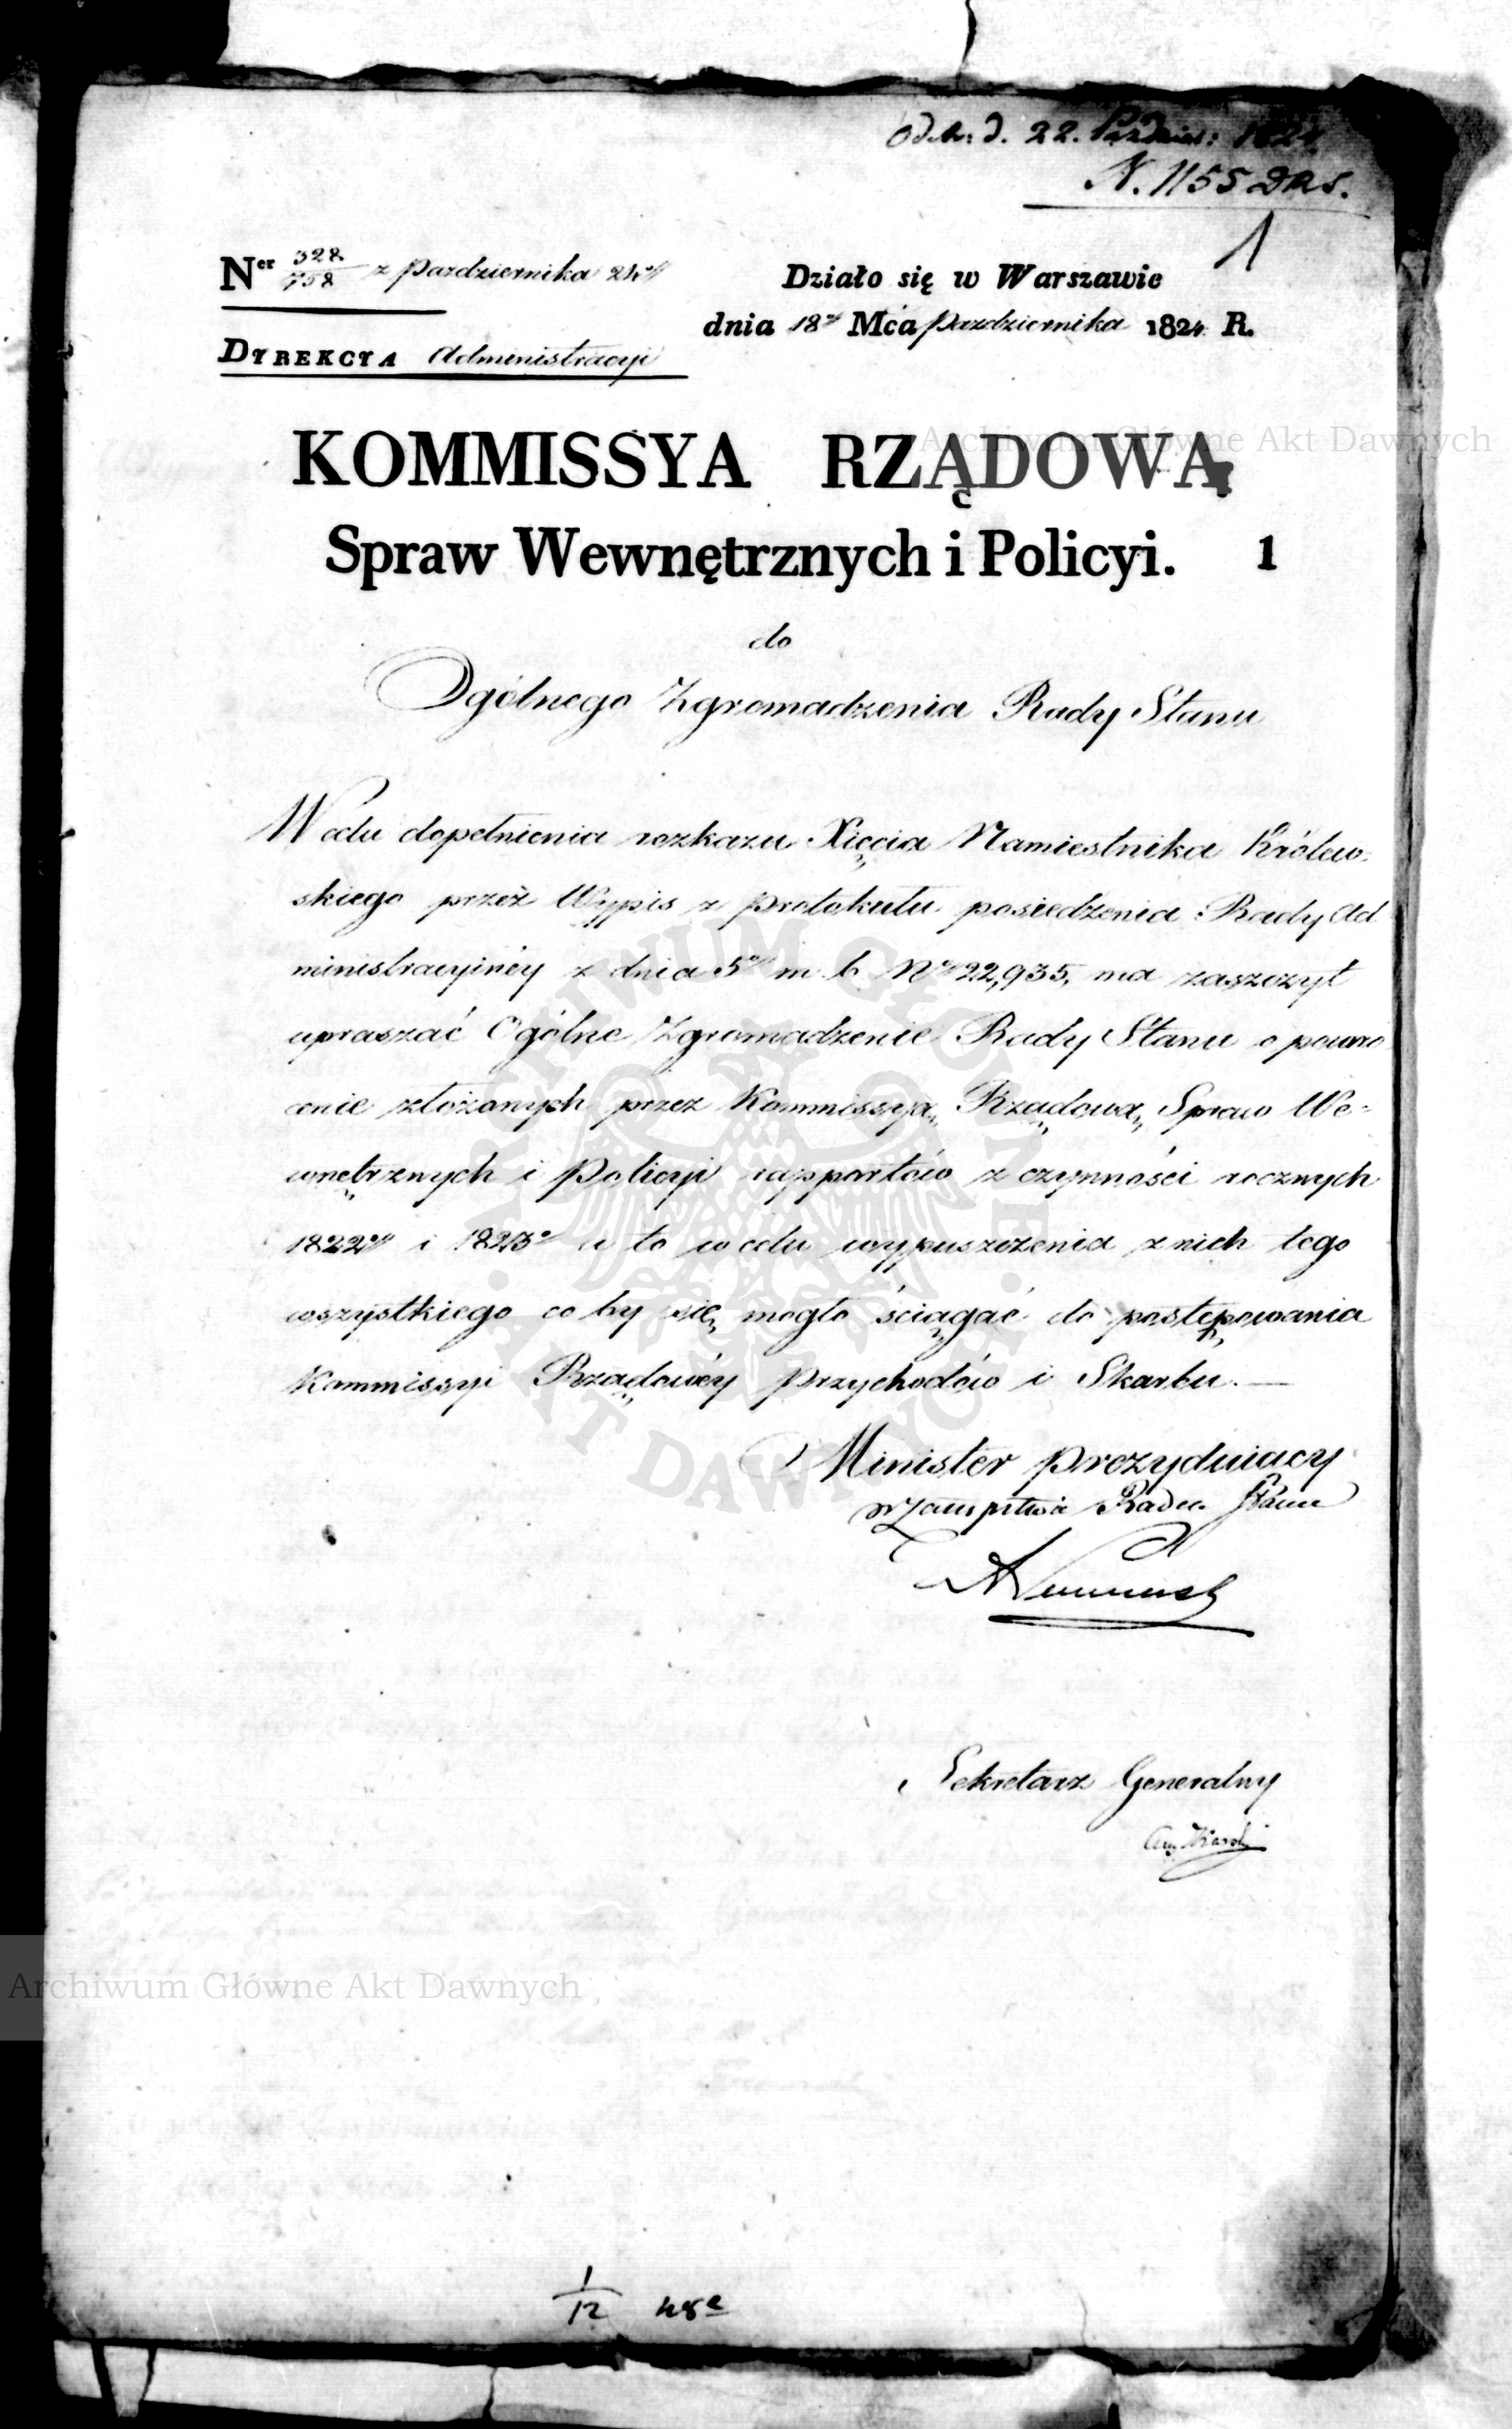 Odeb: d. 22. Paździer: 1824.
N. 1155 DRS.
1
Ner 328/758 z Pazdziernika 24go
Działo się w Warszawie
dnia 18go Mca Pazdziernika 1824 R.
DYREKCYA Administracyi
KOMMISSYA RZĄDOWA
Archiwum Główne Akt Dawnych
Spraw Wewnętrznych i Policyi.
1
do
Ogólnego Zgromadzenia Rady Stanu
W celu dopełnienia rozkazu Xięcia Namiestnika Królew-
skiego przez Wypis z Protokułu posiedzenia Rady Ad
ministracyinéy z dnia 5go m. b. No 22,935, ma zaszczyt
upraszać Ogólne Zgromadzenie Rady Stanu o powró
cenie złożonych przez Kommissyą Rządową Spraw We-
wnętrznych i Policyi rapportów z czynności rocznych
1822go i 1823o a to w celu wypuszczenia z nich tego
wszystkiego co by się mogło ściągać do postępowania
Kommissyi Rządowéy Przychodów i Skarbu.—
ARCHIWUM GŁÓWNE AKT DAWNYCH
Minister Prezyduiacy
w Zastępstwie Radca Stanu
Sekretarz Generalny
Archiwum Główne Akt Dawnych
1/12 48e